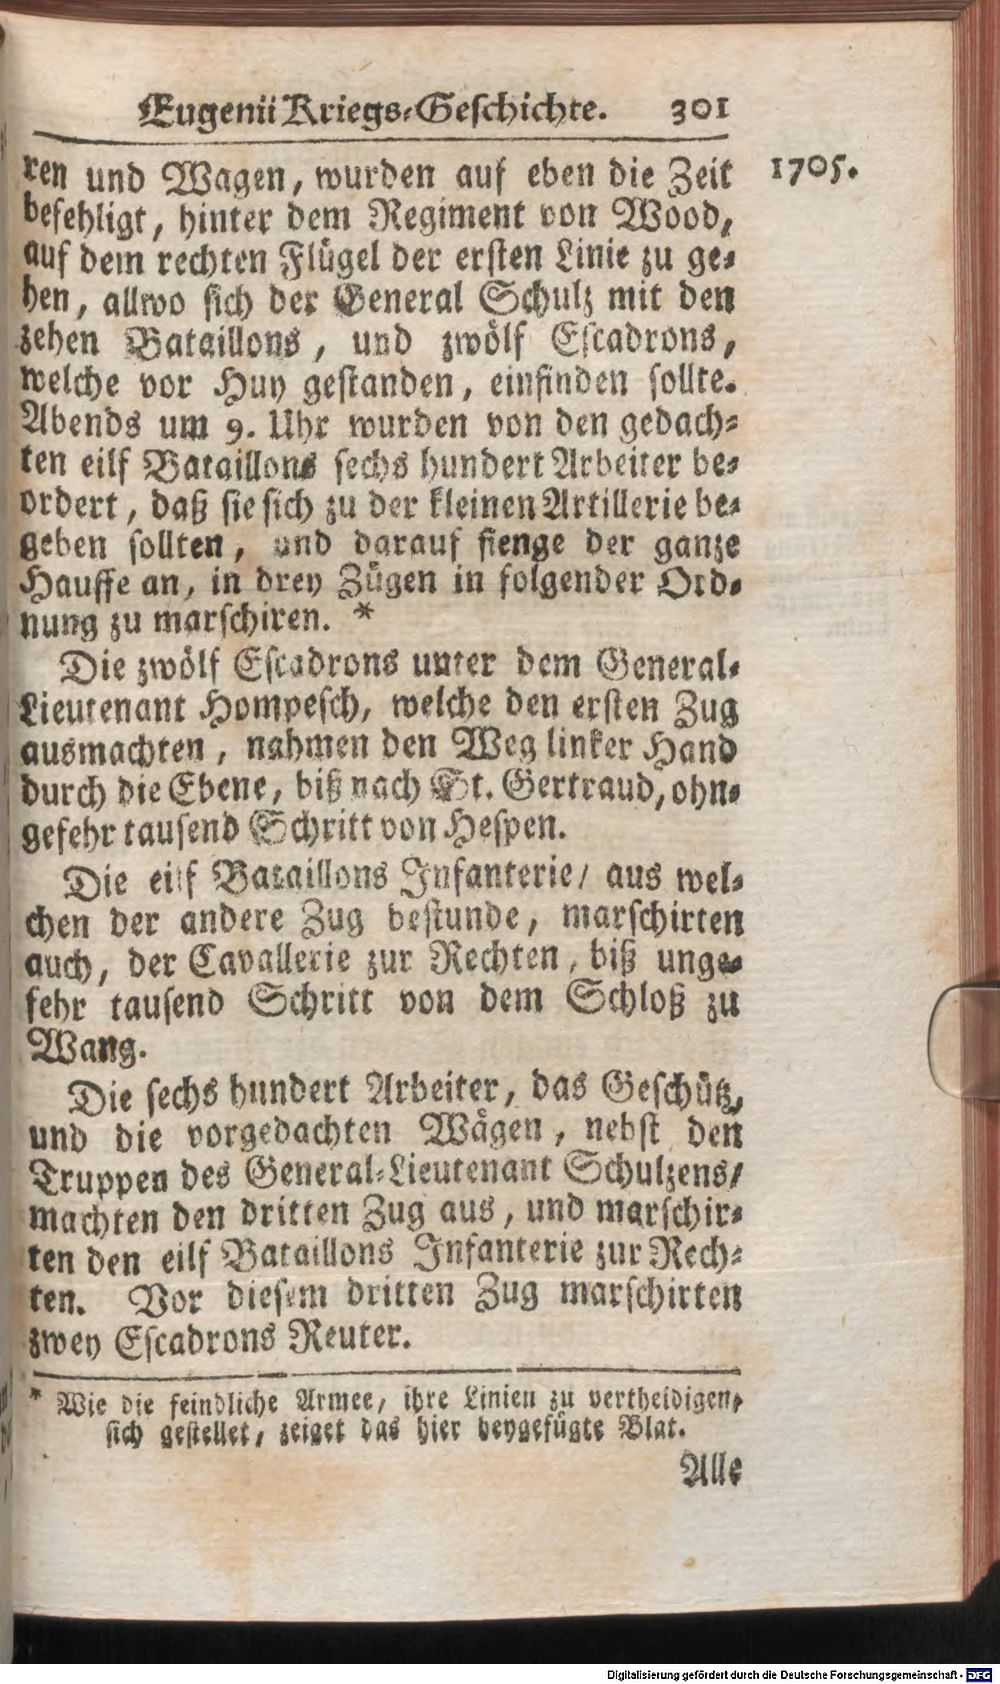 Eugenii Kriegs-Geschichte. 301
1705.
ren und Wagen, wurden auf eben die Zeit
befehligt, hinter dem Regiment von Wood,
auf dem rechten Flügel der ersten Linie zu ge-
hen, allwo sich der General Schulz mit den
zehen Bataillons, und zwölf Escadrons,
welche vor Huy gestanden, einfinden sollte.
Abends um 9. Uhr wurden von den gedach-
ten eilf Bataillons sechs hundert Arbeiter be-
ordert, daß sie sich zu der kleinen Artillerie be-
geben sollten, und darauf fienge der ganze
Hauffe an, in drey Zügen in folgender Ord-
nung zu marschiren. *
Die zwölf Escadrons unter dem General-
Lieutenant Hompesch, welche den ersten Zug
ausmachten, nahmen den Weg linker Hand
durch die Ebene, biß nach St. Gertraud, ohn-
gefehr tausend Schritt von Hespen.
Die eilf Bataillons Infanterie/ aus wel-
chen der andere Zug bestunde, marschirten
auch, der Cavallerie zur Rechten, biß unge-
fehr tausend Schritt von dem Schloß zu
Wang.
Die sechs hundert Arbeiter, das Geschütz,
und die vorgedachten Wägen, nebst den
Truppen des General-Lieutenant Schulzens/
machten den dritten Zug aus, und marschir-
ten den eilf Bataillons Infanterie zur Rech-
ten. Vor diesem dritten Zug marschirten
zwey Escadrons Reuter.
* Wie die feindliche Armee, ihre Linien zu vertheidigen,
sich gestellet, zeiget das hier beygefügte Blat.
Alle
Digitalisierung gefördert durch die Deutsche Forschungsgemeinschaft - DFG